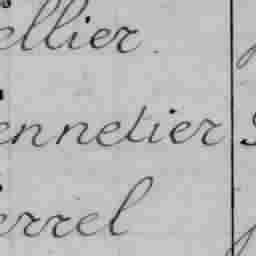 ellier.
ennetier
errel